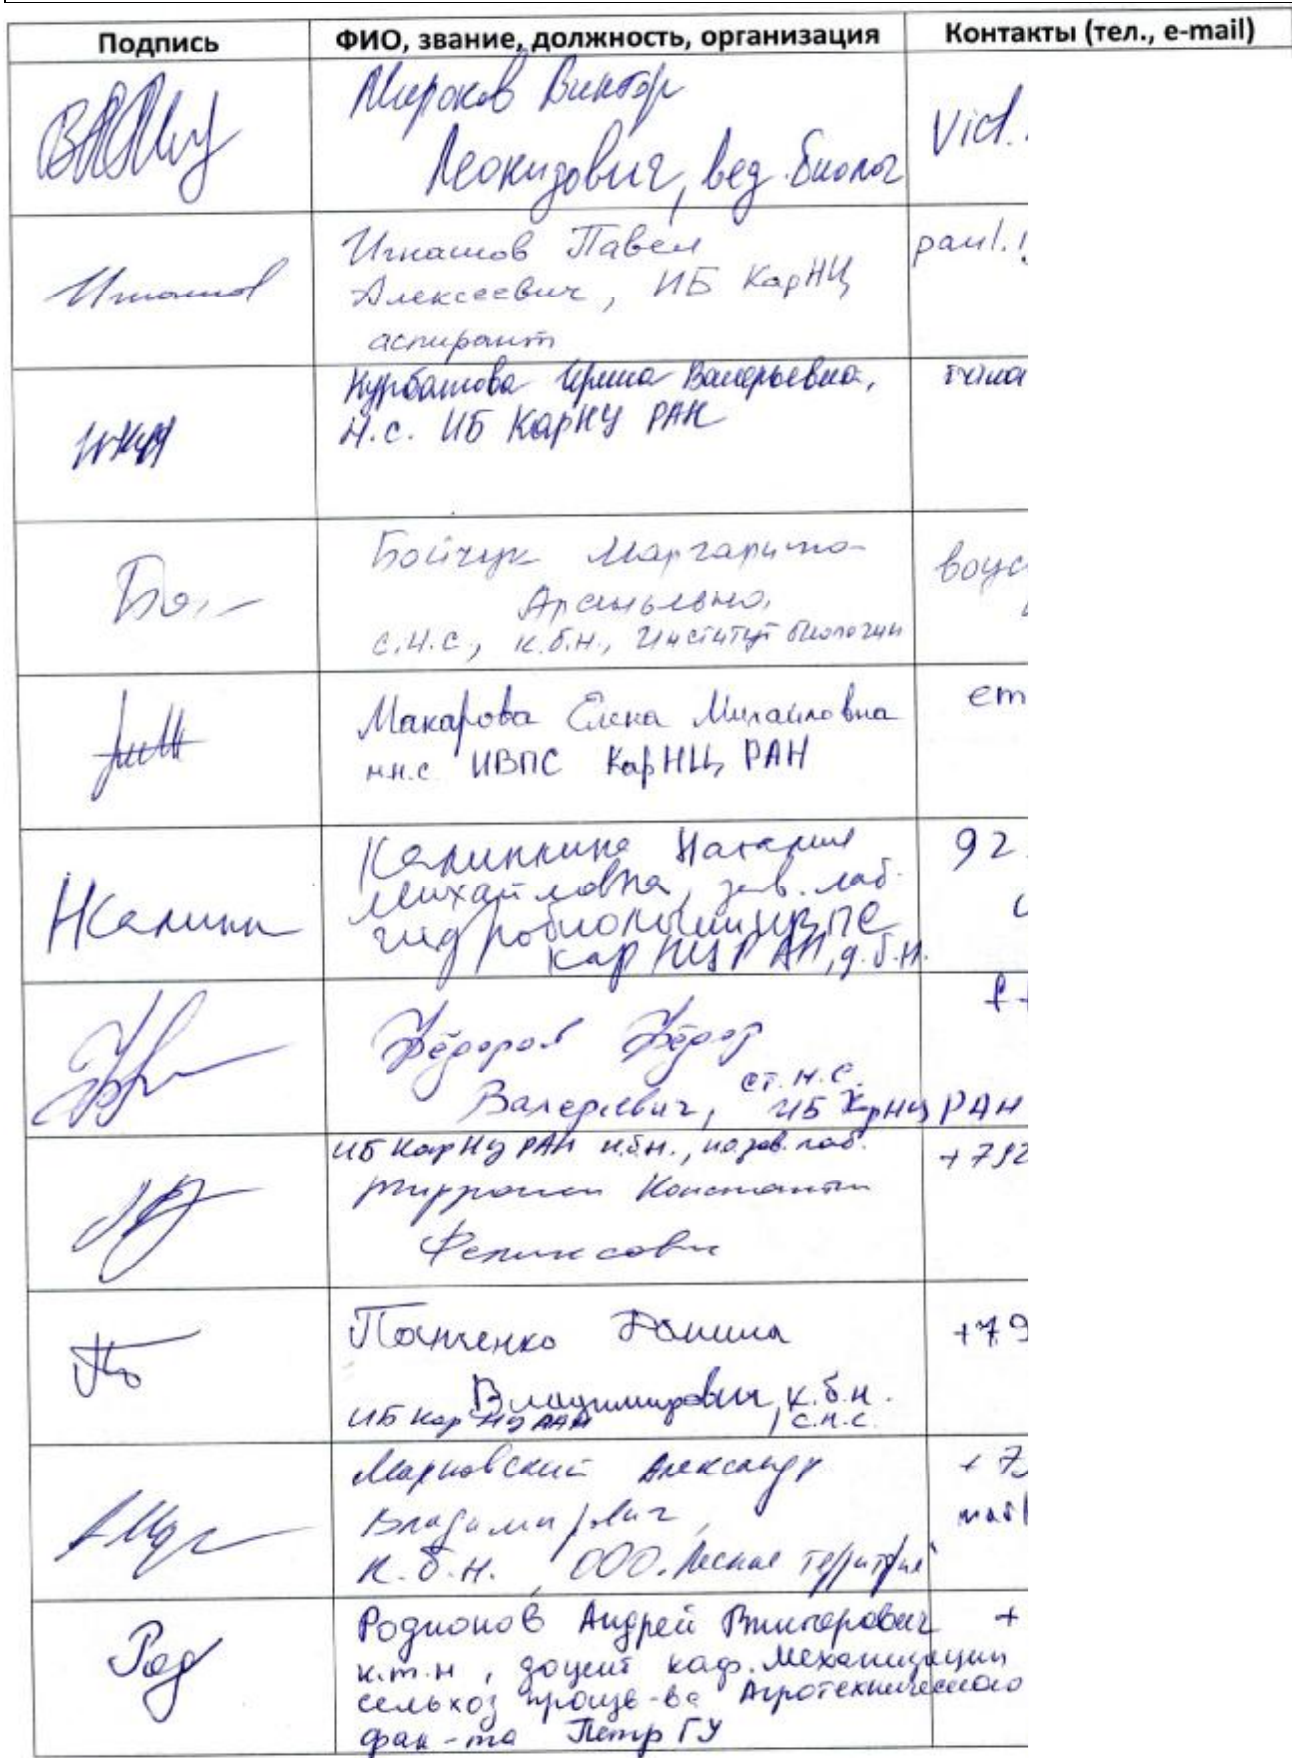 Подпись ФИО, звание, должность, организация Контакты (тел., e-mail)
Мироков Виктор
Леонидович, вед. биолог
Vict.
Игнашов
Игнашов Павел
Алексеевич, ИБ КарНЦ
аспирант
paul.i
Курбатова Ирина Валерьевна,
н.с. ИБ КарНЦ РАН
irina
Бойчук Маргарита
Арсеньевна,
с.н.с., к.б.н., Институт биологии
boyc
Макарова Елена Михайловна
м.н.с ИВПС КарНЦ РАН
em
НКалинк
Калинкина Наталия
Михайловна, зав. лаб.
гидробиологии ИВПС
КарНЦ РАН, д.б.н.
92
Фёдоров Фёдор
ст. н.с.
Валериевич, ИБ КарНЦ РАН
f
ИБ КарНЦ РАН к.б.н., зав. лаб.
Константин
Феликсович
+792
Панченко Данила
Владимирович, к.б.н.
ИБ КарНЦ РАН, с.н.с.
+79
Марковский Александр
Владимирович,
к.б.н., ООО "Лесная территория"
+7
Род
Родионов Андрей Викторович
к.т.н, доцент каф. механизации
сельхоз произв-ва Агротехнического
фак-та ПетрГУ
+